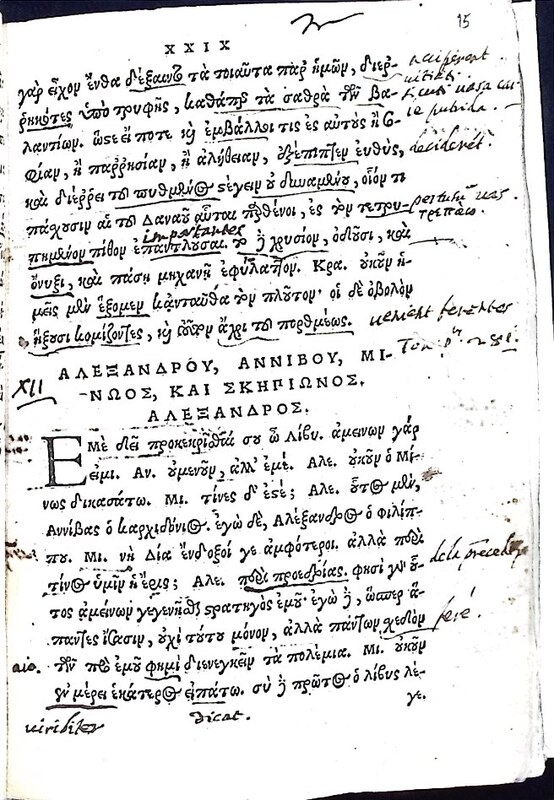 15
XXIX
γὰρ εἶχον ἔνθα δέξαιντο τὰ τοιαῦτα παρ' ἡμῶν, διερ-
ρηκότες ὑπὸ τρυφῆς, καθάπερ τὰ σαθρὰ τῶν βα-
λαντίων. ὥστε εἴ ποτε καὶ ἐμβάλλοι τις ἐς αὐτοὺς ἢ σο-
φίαν, ἢ παρρησίαν, ἢ ἀλήθειαν, ἐξέπιπτεν εὐθὺς,
καὶ διέρρει τοῦ πυθμένος στέγειν οὐ δυναμένου, οἷόν τι
πάχουσιν αἱ τοῦ Δαναοῦ αὗται παρθένοι, ἐς τὸν τετρυ-
πημένον πίθον ἐπαντλοῦσαι. τὸ δὲ χρυσίον, ὀδοῦσι, καὶ
ὄνυξι, καὶ πάσῃ μηχανῇ ἐφύλαττον. Κρα. οὐκοῦν ἡ-
μεῖς μὲν ἕξομεν κἀνταῦθα τὸν πλοῦτον· οἱ δὲ ὀβολὸν
ἥξουσι κομίζοντες, καὶ τοῦτον ἄχρι τοῦ πορθμέως.
XII
ΑΛΕΞΑΝΔΡΟΥ, ΑΝΝΙΒΟΥ, ΜΙ-
ΝΩΟΣ, ΚΑΙ ΣΚΗΠΙΩΝΟΣ.
ΑΛΕΞΑΝΔΡΟΣ.
ΕΜὲ δεῖ προκεκρίσθαι σου ὦ Λίβυ. ἀμείνων γάρ
εἰμι. Αν. οὐμενοῦν, ἀλλ' ἐμέ. Αλε. οὐκοῦν ὁ Μί-
νως δικασάτω. Μι. τίνες δ' ἐστέ; Αλε. οὗτος μὲν,
Αννίβας ὁ καρχηδόνιος. ἐγὼ δὲ, Αλέξανδρος ὁ φιλίπ-
που. Μι. νὴ Δία ἔνδοξοί γε ἀμφότεροι. ἀλλὰ περὶ
τίνος ὑμῖν ἡ ἔρις; Αλε. περὶ προεδρίας. φησὶ γὰρ οὗ-
τος ἀμείνων γεγενῆσθαι στρατηγὸς ἐμοῦ· ἐγὼ δὲ, ὥσπερ ἅ-
παντες ἴσασιν, οὐχὶ τούτου μόνον, ἀλλὰ πάντων σχεδὸν
τῶν πρὸ ἐμοῦ φημὶ διενεγκεῖν τὰ πολέμια. Μι. οὐκοῦν
ἐν μέρει ἑκάτερος εἰπάτω. σὺ δὲ πρῶτος ὁ λίβυς λέ-
γε.
deciderét.
importantes
fere.
aio.
viriliter
dicat.